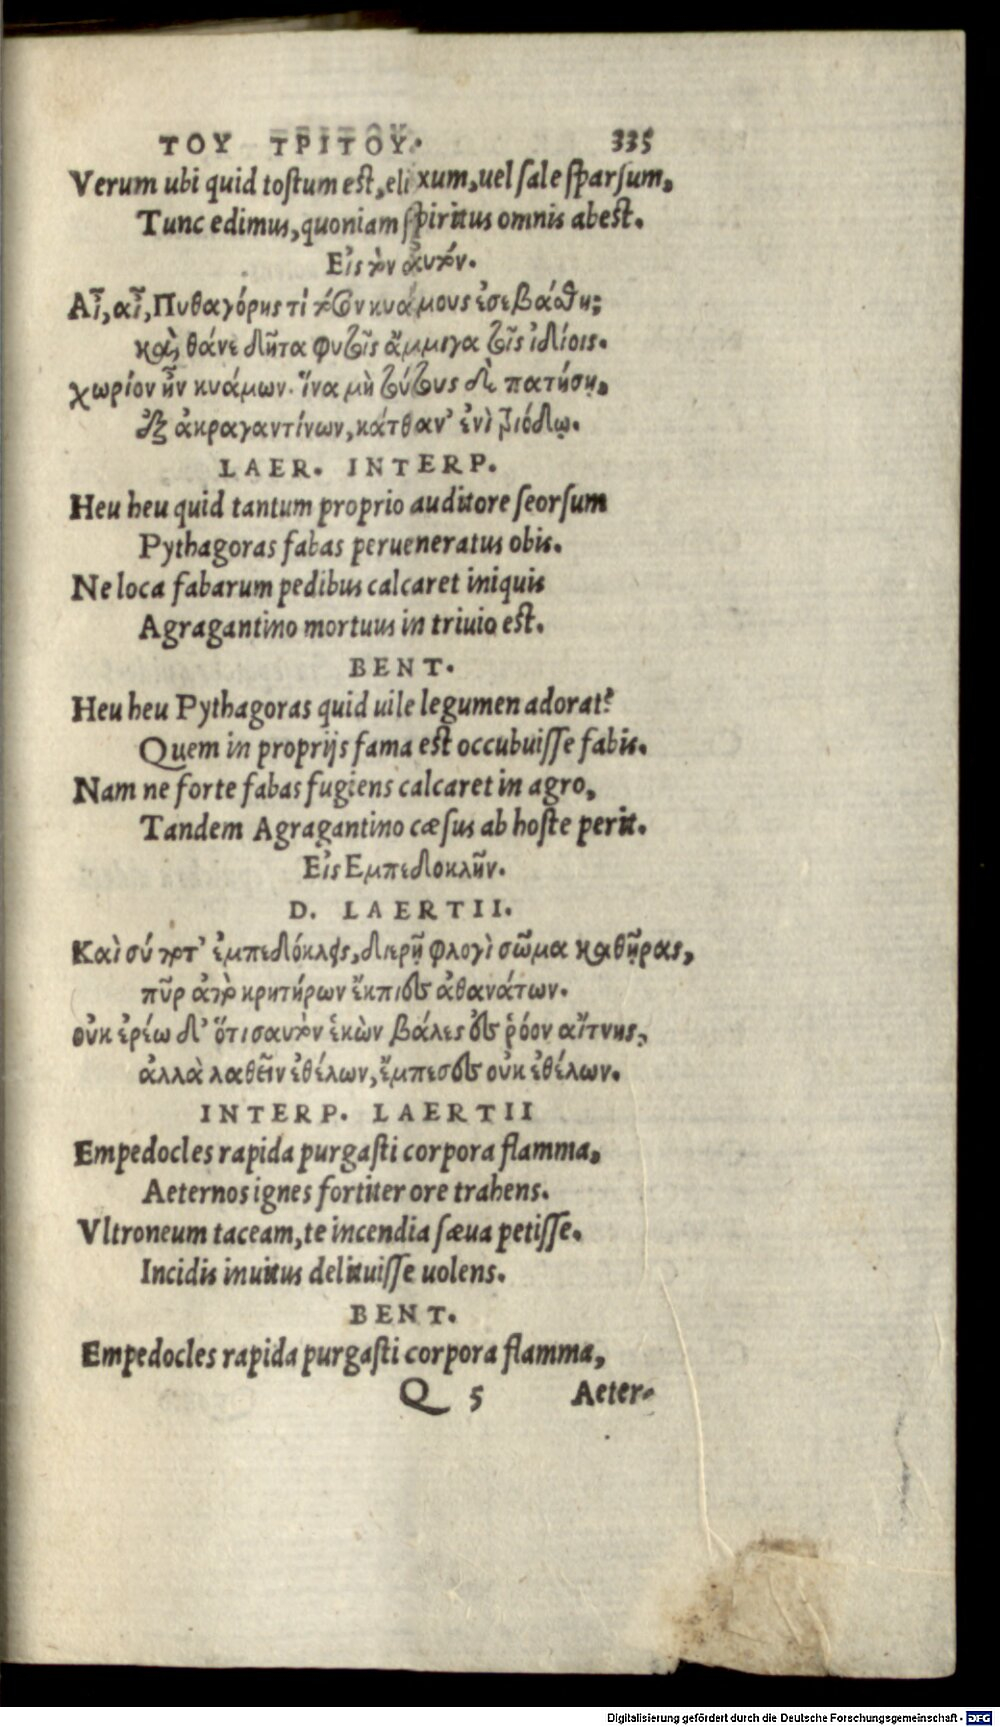 ΤΟΥ ΤΡΙΤΟΥ. 335
Verum ubi quid tostum est, elixum, uel sale sparsum,
Tunc edimus, quoniam spiritus omnis abest.
Εἰς τὸν ἀυτόν.
Αἶ, αἶ, Πυθαγόρης τί τόσον κυάμους ἐσεβάσθη;
καὶ θάνε δῆτα φυτοῖς ἄμμιγα τοῖς ἰδίοις.
χωρίον ἦν κυάμων. ἵνα μὴ τούτους δὲ πατήσῃ,
ἐξ ἀκραγαντίνων, κάτθαν' ἐνὶ τριόδῳ.
LAER. INTERP.
Heu heu quid tantum proprio auditore seorsum
Pythagoras fabas perueneratus obis.
Ne loca fabarum pedibus calcaret iniquis
Agragantino mortuus in triuio est.
BENT.
Heu heu Pythagoras quid uile legumen adorat?
Quem in proprijs fama est occubuisse fabis.
Nam ne forte fabas fugiens calcaret in agro,
Tandem Agragantino cæsus ab hoste perit.
Εἰς Εμπεδοκλῆν.
D. LAERTII.
Καὶ σύ ποτ' ἐμπεδόκλεις, διερῇ φλογὶ σῶμα καθῇρας,
πῦρ ἀπὸ κρητήρων ἔκπιες ἀθανάτων.
οὐκ ἐρέω δ' ὅτι σαυτὸν ἑκὼν βάλες ἐς ῥόον αἴτνης,
ἀλλὰ λαθεῖν ἐθέλων, ἔμπεσες οὐκ ἐθέλων.
INTERP. LAERTII
Empedocles rapida purgasti corpora flamma,
Aeternos ignes fortiter ore trahens.
Vltroneum taceam, te incendia sæua petisse.
Incidis inuitus delituisse uolens.
BENT.
Empedocles rapida purgasti corpora flamma,
Q 5 Aeter-
Digitalisierung gefördert durch die Deutsche Forschungsgemeinschaft - DFG